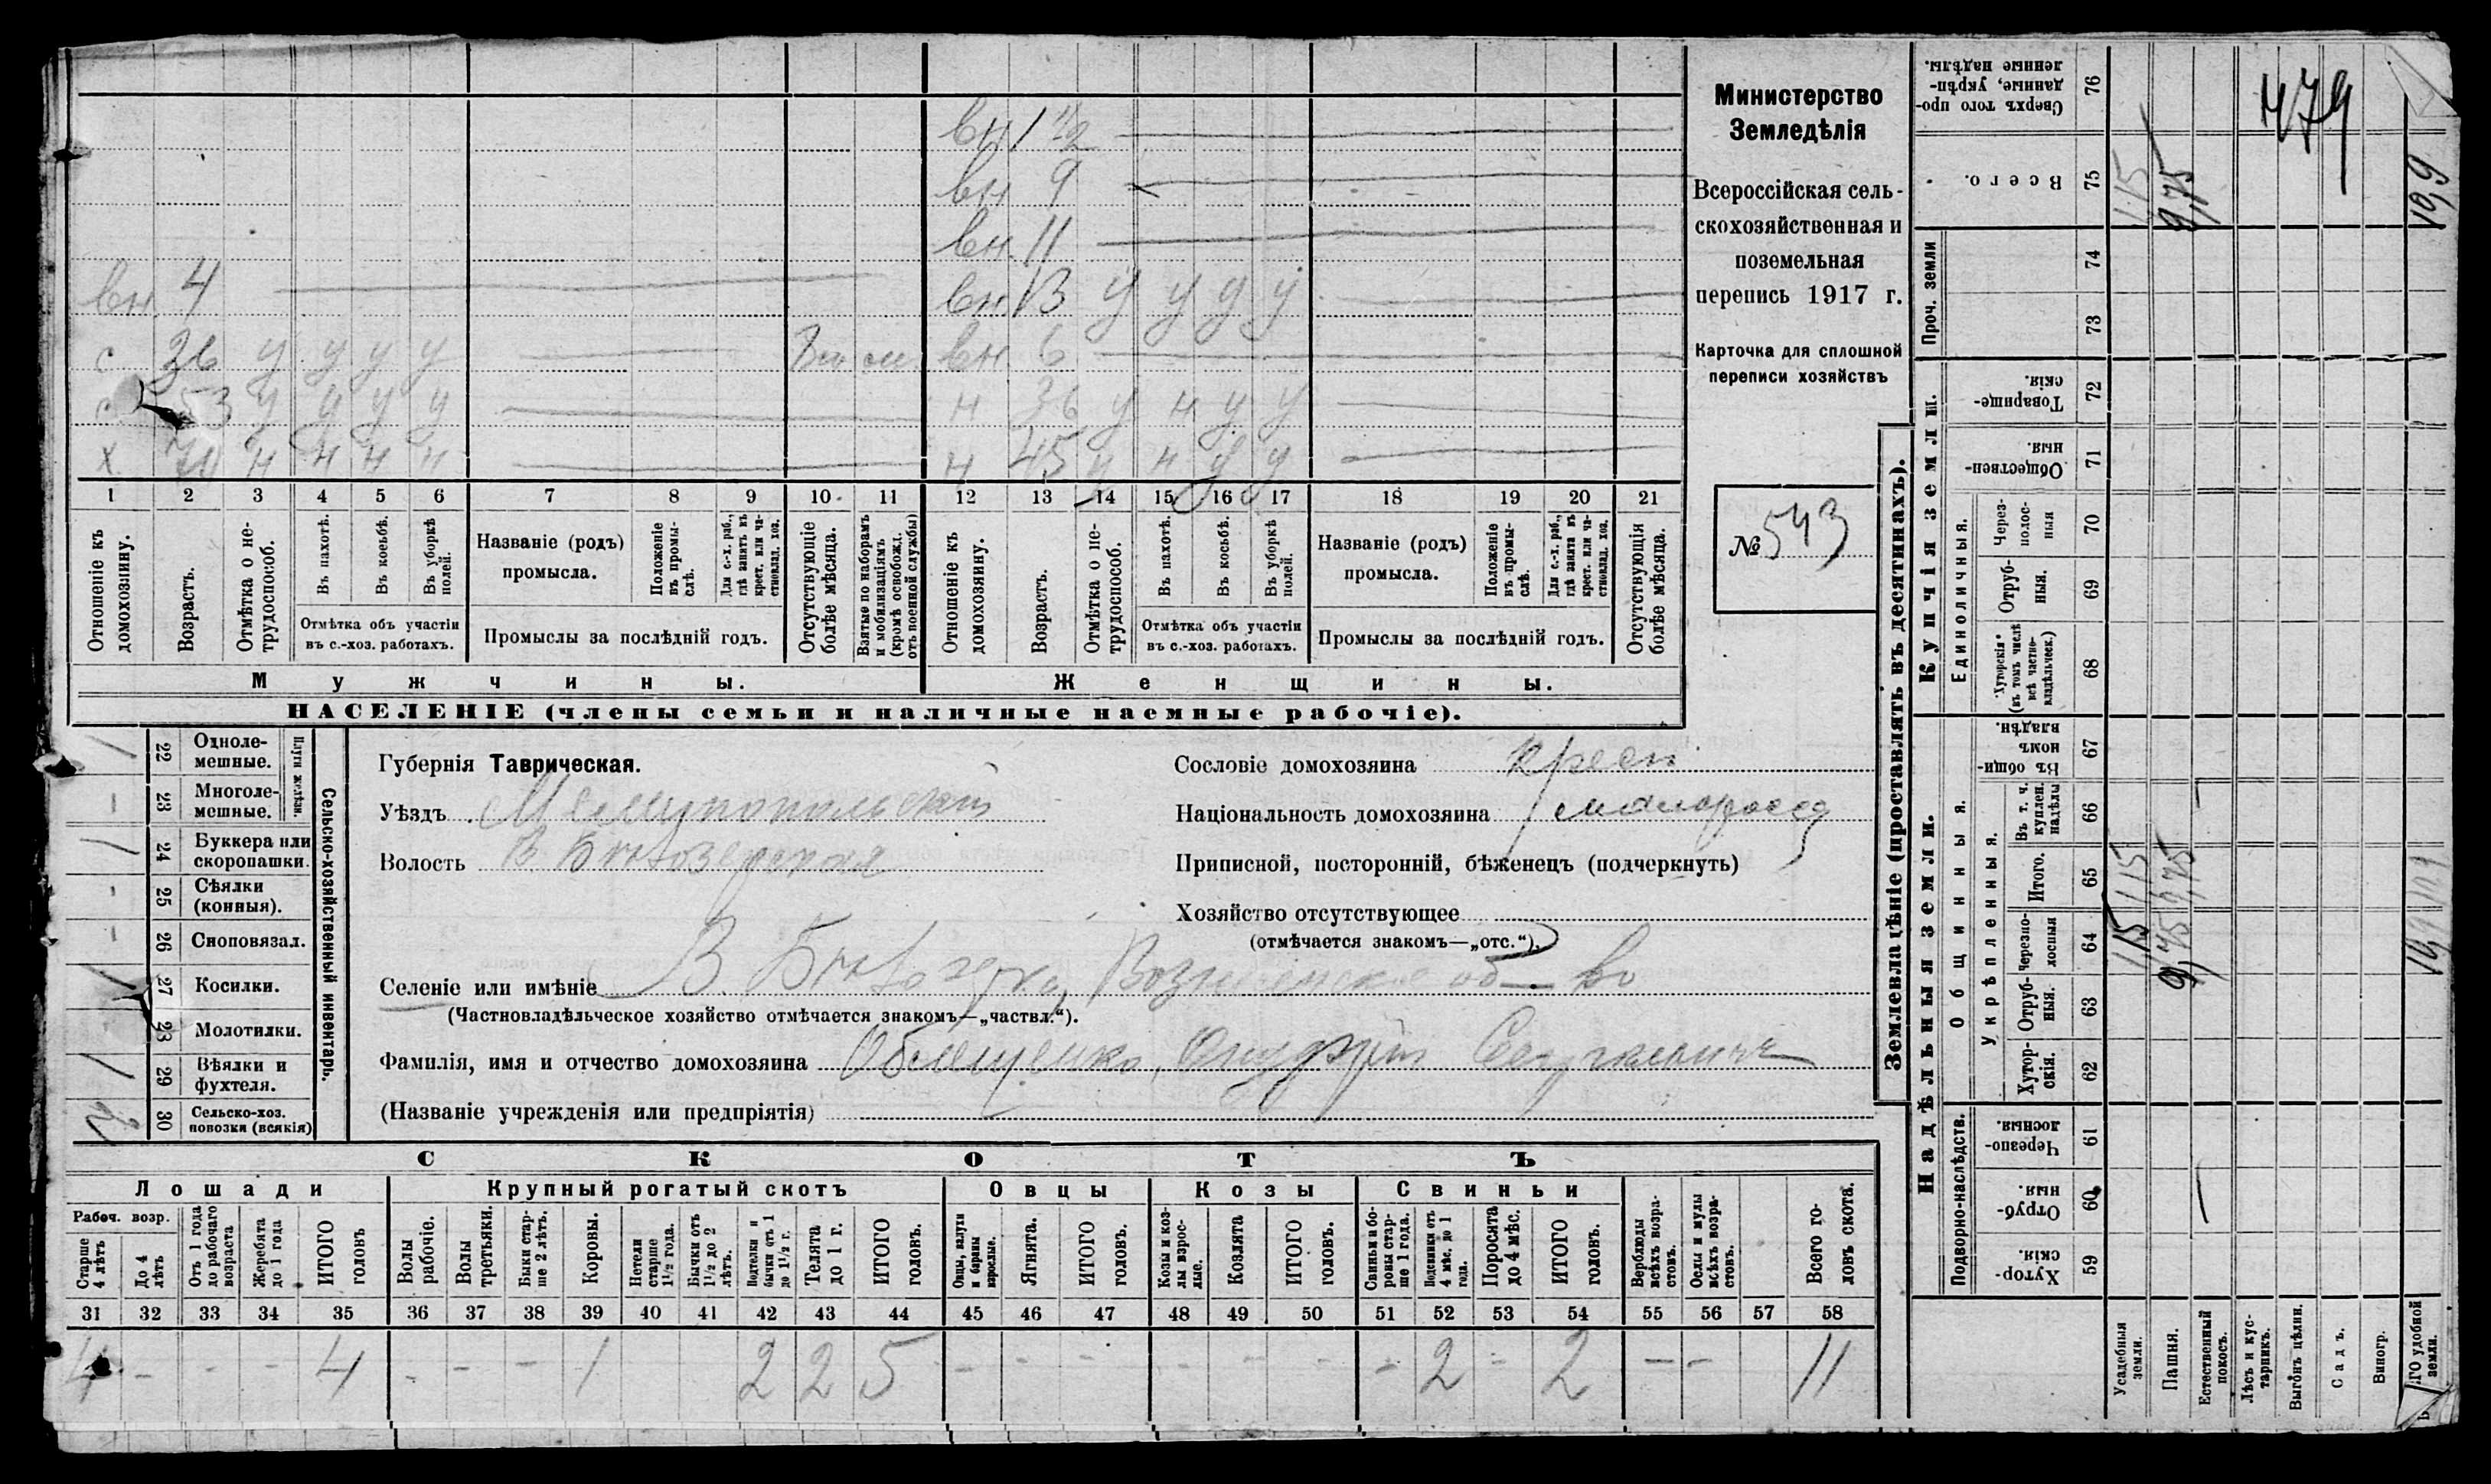 вн 1 1/2
вн 9
вн. 11
вн. 4 вн. 13 у у у у
с 36 у у у у вн 6
53 у у у у н 36 у н у у
х 70 н н н н н 45 н у у
1 2 3 4 5 6 7 8 9 10 11 12 13 14 15 16 17 18 19 20 21
Отношеніе къ домохозяину.
Возрастъ.
Отмѣтка о не-
трудоспособ.
Въ пахотѣ.
Въ косьбѣ.
Въ уборкѣ полей.
Отмѣтка объ участіи
въ с.-хоз. работахъ.
Названіе (родъ)
промысла.
Положеніе въ промы-
слѣ.
Для с.-х. раб.,
гдѣ занятъ въ
крест. или ча-
стновлад. хоз.
Промыслы за послѣдній годъ.
Отсутствующіе
болѣе мѣсяца.
Взятые по наборамъ
и мобилизаціямъ
(кромѣ освобожд.
отъ военной службы)
Отношеніе къ
домохозяину.
Возрастъ.
Отмѣтка о не-
трудоспособ.
Въ пахотѣ.
Въ косьбѣ.
Въ уборкѣ
полей.
Отмѣтка объ участіи
въ с.-хоз. работахъ.
Названіе (родъ)
промысла.
Положеніе
въ промы-
слѣ.
Для с.-х. раб.,
гдѣ занята въ
крест. или ча-
стновлад. хоз.
Промыслы за послѣдній годъ.
Отсутствующія
болѣе мѣсяца.
Мужчины.
Женщины.
НАСЕЛЕНІЕ (члены семьи и наличные наемные рабочіе).
Министерство
Земледѣлія
Всероссійская сель-
скохозяйственная и
поземельная
перепись 1917 г.
Карточка для сплошной
переписи хозяйствъ
№ 543
22 Одноле-
мешные.
23 Многоле-
мешные.
Плуги желѣзн.
24 Буккера или
скоропашки.
25 Сѣялки
(конныя).
26 Сноповязал.
27 Косилки.
28 Молотилки.
29 Вѣялки и
фухтеля.
30 Сельско-хоз.
повозки (всякія)
Сельско-хозяйственный инвентарь.
Губернія Таврическая.
Уѣздъ Мелитопольскій
Волость В. Бѣлозерская
Сословіе домохозяина крест
Національность домохозяина малоросс
Приписной, посторонній, бѣженецъ (подчеркнуть)
Хозяйство отсутствующее
(отмѣчается знакомъ—„отс.“).
Селеніе или имѣніе В. Бѣлозерка, Вознесенское об-во
(Частновладѣльческое хозяйство отмѣчается знакомъ—„частвл.“).
Фамилія, имя и отчество домохозяина Андрей
(Названіе учрежденія или предпріятія)
СКОТЪ
Лошади
Крупный рогатый скотъ
Овцы
Козы
Свиньи
Рабоч. возр.
Старше
4 лѣтъ
До 4
лѣтъ
Отъ 1 года
до рабочаго
возраста
Жеребята
до 1 года
ИТОГО
головъ
Волы
рабочіе.
Волы
третьяки.
Быки стар-
ше 2 лѣтъ.
Коровы.
Нетели
старше
1 1/2 года.
Бычки отъ
1 1/2 до 2
лѣтъ.
Подтелки и
бычки отъ 1
до 1 1/2 г.
Телята
до 1 г.
ИТОГО
головъ.
Овцы, валухи
и бараны
взрослые.
Ягнята.
ИТОГО
головъ.
Козы и коз-
лы взрос-
лые.
Козлята
ИТОГО
головъ.
Свиньи и бо-
ровы стар-
ше 1 года.
Подсвинки отъ
4 мѣс. до 1
года.
Поросята
до 4 мѣс.
ИТОГО
головъ.
Верблюды
всѣхъ возра-
стовъ.
Ослы и мулы
всѣхъ возра-
стовъ.
Всего го-
ловъ скота.
31 32 33 34 35 36 37 38 39 40 41 42 43 44 45 46 47 48 49 50 51 52 53 54 55 56 57 58
4 - - - 4 - - - 1 2 2 5 - - - - - - - 2 - 2 - - 11
Землевладѣніе (проставлять въ десятинахъ).
Купчія земли.
Надѣльныя земли.
Сверхъ того про-
данные, укрѣп-
ленные надѣлы.
76
Всего.
75
Проч. земли
74
73
Товарище-
скія.
72
Обществен-
ныя.
71
Единоличныя.
Через-
полос-
ныя
70
Отруб-
ныя.
69
Хуторскія
(въ томъ числѣ
всѣ частно-
владѣльческ.)
68
Общинныя.
Въ общи-
номъ
владѣн.
67
Укрѣпленныя.
Въ т. ч.
куплен.
надѣлы
66
Итого.
65
Черезпо-
лосныя
64
Отруб-
ныя.
63
Хутор-
скія.
62
Подворно-наслѣдств.
Черезпо-
лосныя.
61
Отруб-
ныя.
60
Хутор-
скія.
59
Усадебныя
земли.
1,15 1,15 1,15
Пашня.
9,75 9,75 9,75
Естественный
покосъ.
Лѣсъ и кус-
тарникъ.
Выгонъ цѣлин.
Садъ.
Виногр.
ГО удобной
земли.
10,9 10,9 10,9
479